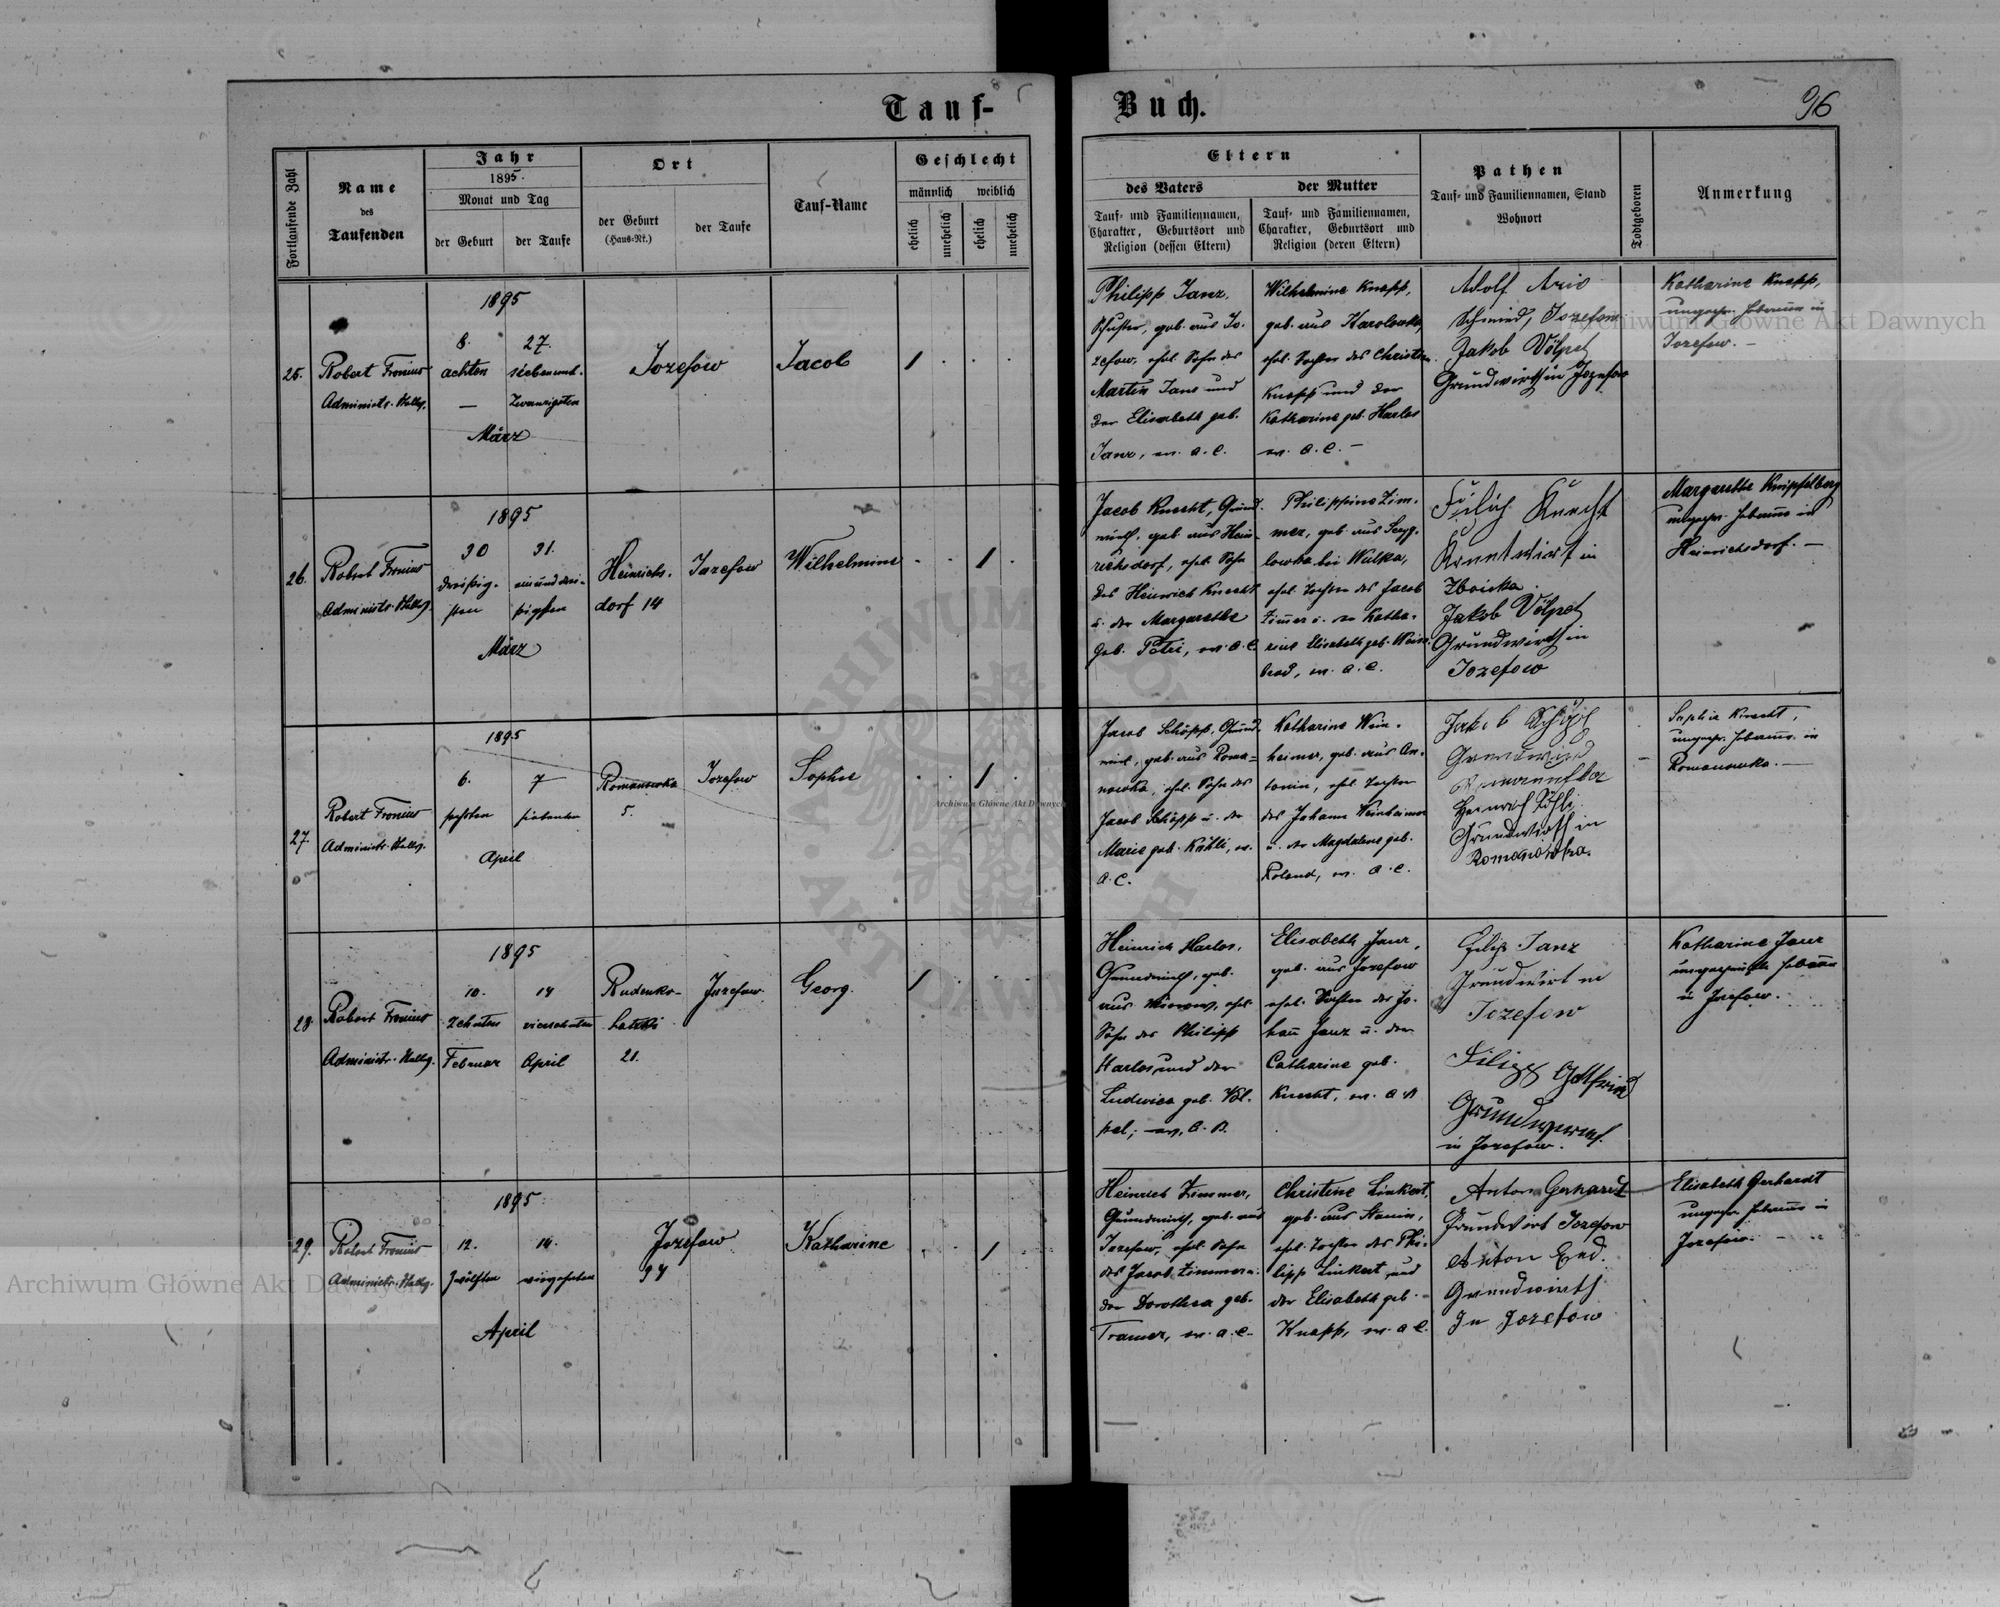 Tauf-
Buch.
96
Fortlaufende Zahl
Name
des
Taufenden
Jahr
1895.
Monat und Tag
der Geburt
der Taufe
Ort
der Geburt
(Haus-Nr.)
der Taufe
Tauf-Name
Geschlecht
männlich
weiblich
ehelich
unehelich
ehelich
unehelich
Eltern
des Vaters
der Mutter
Tauf- und Familiennamen,
Charakter, Geburtsort und
Religion (dessen Eltern)
Tauf- und Familiennamen,
Charakter, Geburtsort und
Religion (deren Eltern)
Pathen
Tauf- und Familiennamen, Stand
Wohnort
Todtgeboren
Anmerkung
25.
Robert Fronius
Administr.
1895
8. 27.
achten siebenund-
— zwanzigsten
März
Jozefow
Jacob
1
Philipp Janz,
Schuster, geb. aus Jo-
zefow, ehel. Sohn des
Martin Janz und
der Elisabeth geb.
Janz, ev. A. C.
Wilhelmine Knapp,
geb. aus Karolowka,
ehel. Tochter des Christian
Knapp und der
Katharine geb. Harlos
ev. A. C. —
Adolf
Schmied, Jozefow
Jakob Völpel
Grundwirth in Jozefow
Katharine Knapp,
ungepr. Hebamme in
Jozefow. —
26.
Robert Fronius
Administr.
1895
30 31.
dreißig- ein und drei-
sten ßigsten
März
Heinrichs-
dorf 14
Jozefow
Wilhelmine
1
Jacob Knecht, Grund-
wirth, geb. aus Hein-
richsdorf, ehel. Sohn
des Heinrich Knecht
u. der Margarethe
geb. Petri, ev. A. C.
Philippine Zim-
mer, geb. aus
lowka bei Wulka,
ehel. Tochter des Jacob
Zimmer u. der Katha-
rine Elisabeth geb. Wein-
brod, ev. A. C.
Filip Knecht
in
Zboiska
Jakob Völpel
Grundwirth in
Jozefow
Margarethe Knipfelberg
ungepr. Hebamme in
Heinrichsdorf. —
27.
Robert Fronius
Administr.
1895
6. 7
sechsten siebenten
April
Romanowka
5.
Jozefow
Sophie
1
Jacob Schöpp, Grund-
wirt, geb. aus Roma-
nowka, ehel. Sohn des
Jacob Schöpp u. der
Marie geb. Köhli, ev.
A. C.
Katharine Wein-
heimer, geb. aus An-
tonin, ehel. Tochter
des Johann Weinheimer
u. der Magdalene geb.
Roland, ev. A. C.
Jakob Schöpp
Grundwirth
Romanufka
Heinrich Köhli
Grundwirth in
Romanowka.
Sophie Knecht,
ungepr. Hebamme in
Romanowka. —
28
Robert Fronius
Administr.
1895
10. 14
zehnten vierzehnten
Februar April
Rudenko-
lacki
21.
Jozefow
Georg.
1
Heinrich Harlos,
Grundwirth, geb.
aus ehel.
Sohn des Philipp
Harlos und der
Ludwica geb. Völ-
pel; ev. A. C.
Elisabeth Janz,
geb. aus Jozefow
ehel. Tochter des Jo-
hann Janz u. der
Catharine geb.
Knecht, ev. A. C.
Filip Janz
Grundwirt in
Jozefow
Filipp Gottfried
Grundwirth
in Jozefow.
Katharine Janz
ungeprüfte Hebamme
in Jozefow.
29.
Robert Fronius
Administr.
1895
12. 14.
zwölften vierzehnten
April
Jozefow
94
Katharine
1
Heinrich Zimmer,
Grundwirth, geb. aus
Jozefow, ehel. Sohn
des Jacob Zimmer u.
der Dorothea geb.
Tramer, ev. A. C.
Christine Linkert,
geb. aus Stanin,
ehel. Tochter des Phi-
lipp Linkert und
der Elisabeth geb.
Knapp, ev. A. C.
Anton Gerhardt
Grundwirt Jozefow
Anton End.
Grundwirth
In Jozefow
Elisabeth Gerhardt
ungepr. Hebamme in
Jozefow. —
Archiwum Główne Akt Dawnych
Archiwum Główne Akt Dawnych
Archiwum Główne Akt Dawnych